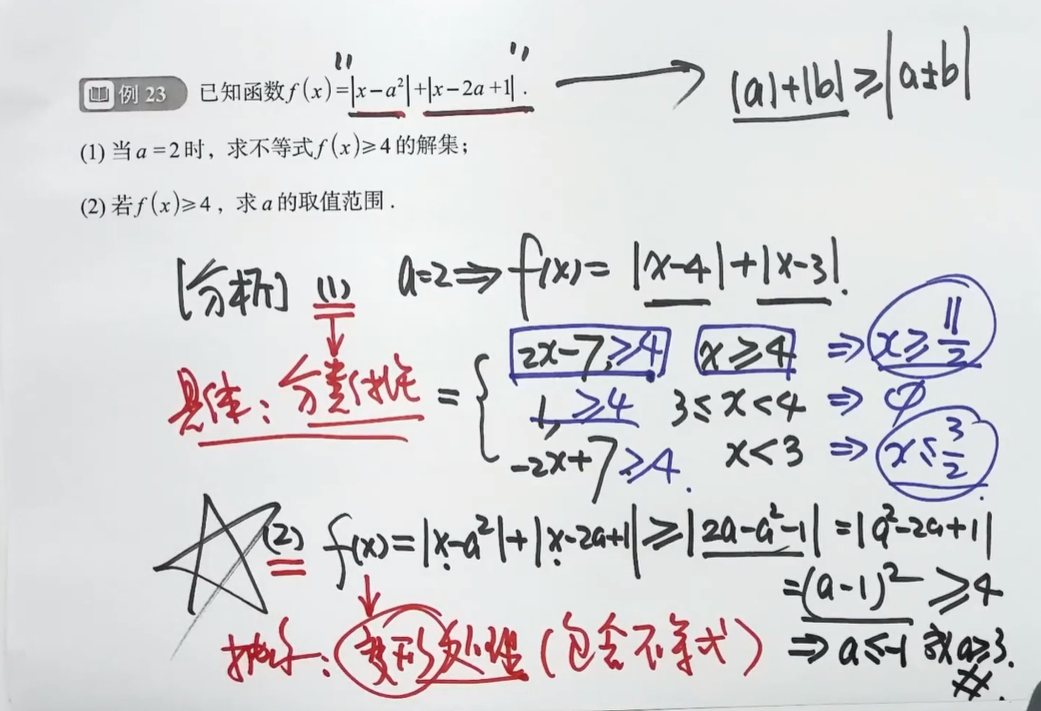 例 23 已知函数f(x)=|x-a²|+|x-2a+1|. |a|+|b|≥|a±b|
(1) 当a=2时，求不等式f(x)≥4的解集；
(2) 若f(x)≥4，求a的取值范围.
[分析] (1) a=2⇒f(x)=|x-4|+|x-3|.
具体：分类讨论 = { 2x-7≥4 x≥4 ⇒ x≥11/2
1≥4 3≤x<4 ⇒ ∅
-2x+7≥4. x<3 ⇒ x≤3/2.
(2) f(x)=|x-a²|+|x-2a+1|≥|2a-a²-1|=|a²-2a+1|
=(a-1)²≥4
抽象：变形处理（包含不等式） ⇒a≤-1或a≥3.
#.